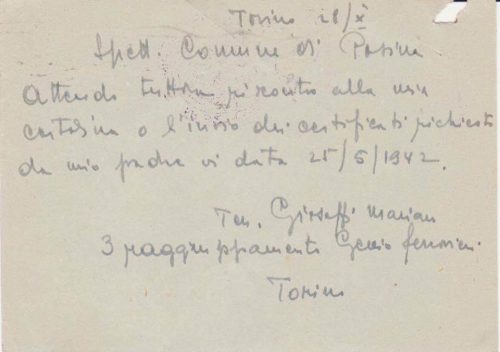 Torino 28/X
Spett. Comune di Posina
Attendo tuttora riscontro alla mia
cartolina o l'invio dei certificati richiesti
da mio padre in data 25/5/1942.
Ten. Gioseffi Marian
3 raggruppamento Genio ferrovieri
Torino